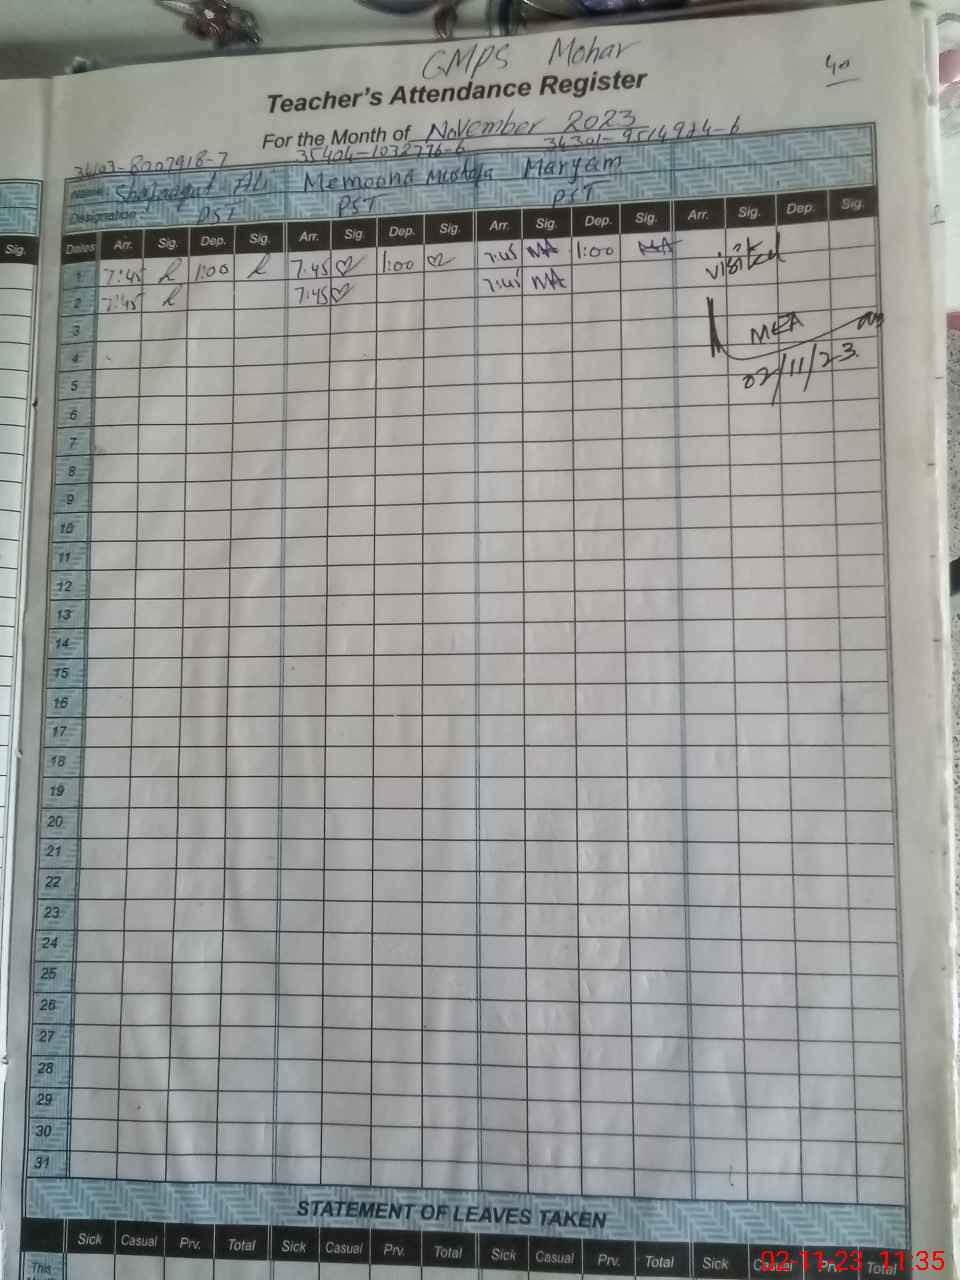 GMPS Mohar
40
Teacher's Attendance Register
For the Month of November 2023
35404-1032776-6 34301-9514924-6
Name Ali Memoona Mustafa Maryam
Designation PST PST PST
Sig. Dates Arr. Sig. Dep. Sig. Arr. Sig. Dep. Sig. Arr. Sig. Dep. Sig. Arr. Sig. Dep. Sig.
1 7:45 1:00 7:45 1:00 7:45 MA 1:00 MA visited
2 7:45 7:45 7:45 MA
3 MEA
4 02/11/23
5
6
7
8
9
10
11
12
13
14
15
16
17
18
19
20
21
22
23
24
25
26
27
28
29
30
31
STATEMENT OF LEAVES TAKEN
Sick Casual Prv. Total Sick Casual Prv. Total Sick Casual Prv. Total Sick Casual Prv. Total
This
02-11-23 11:35